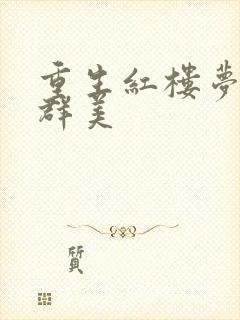 重生紅樓夢
群美
質